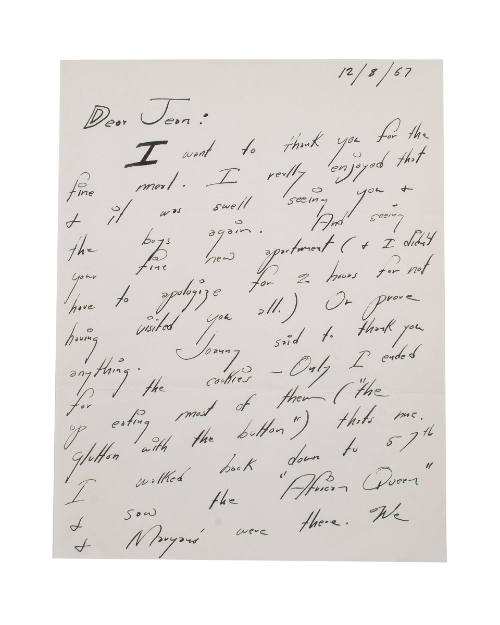 12/8/67
Dear Jean:
I want to thank you for the
fine meal. I really enjoyed that
& it was swell seeing you &
the boys again. And seeing
your fine new apartment (& I didn't
have to apologize for 2 hours for not
having visited you all.) Or prove
anything. Joanny said to thank you
for the cookies – Only I ended
up eating most of them ("the
glutton with the button") thats me.
I walked back down to 57th
& saw the "African Queen"
& were there. We